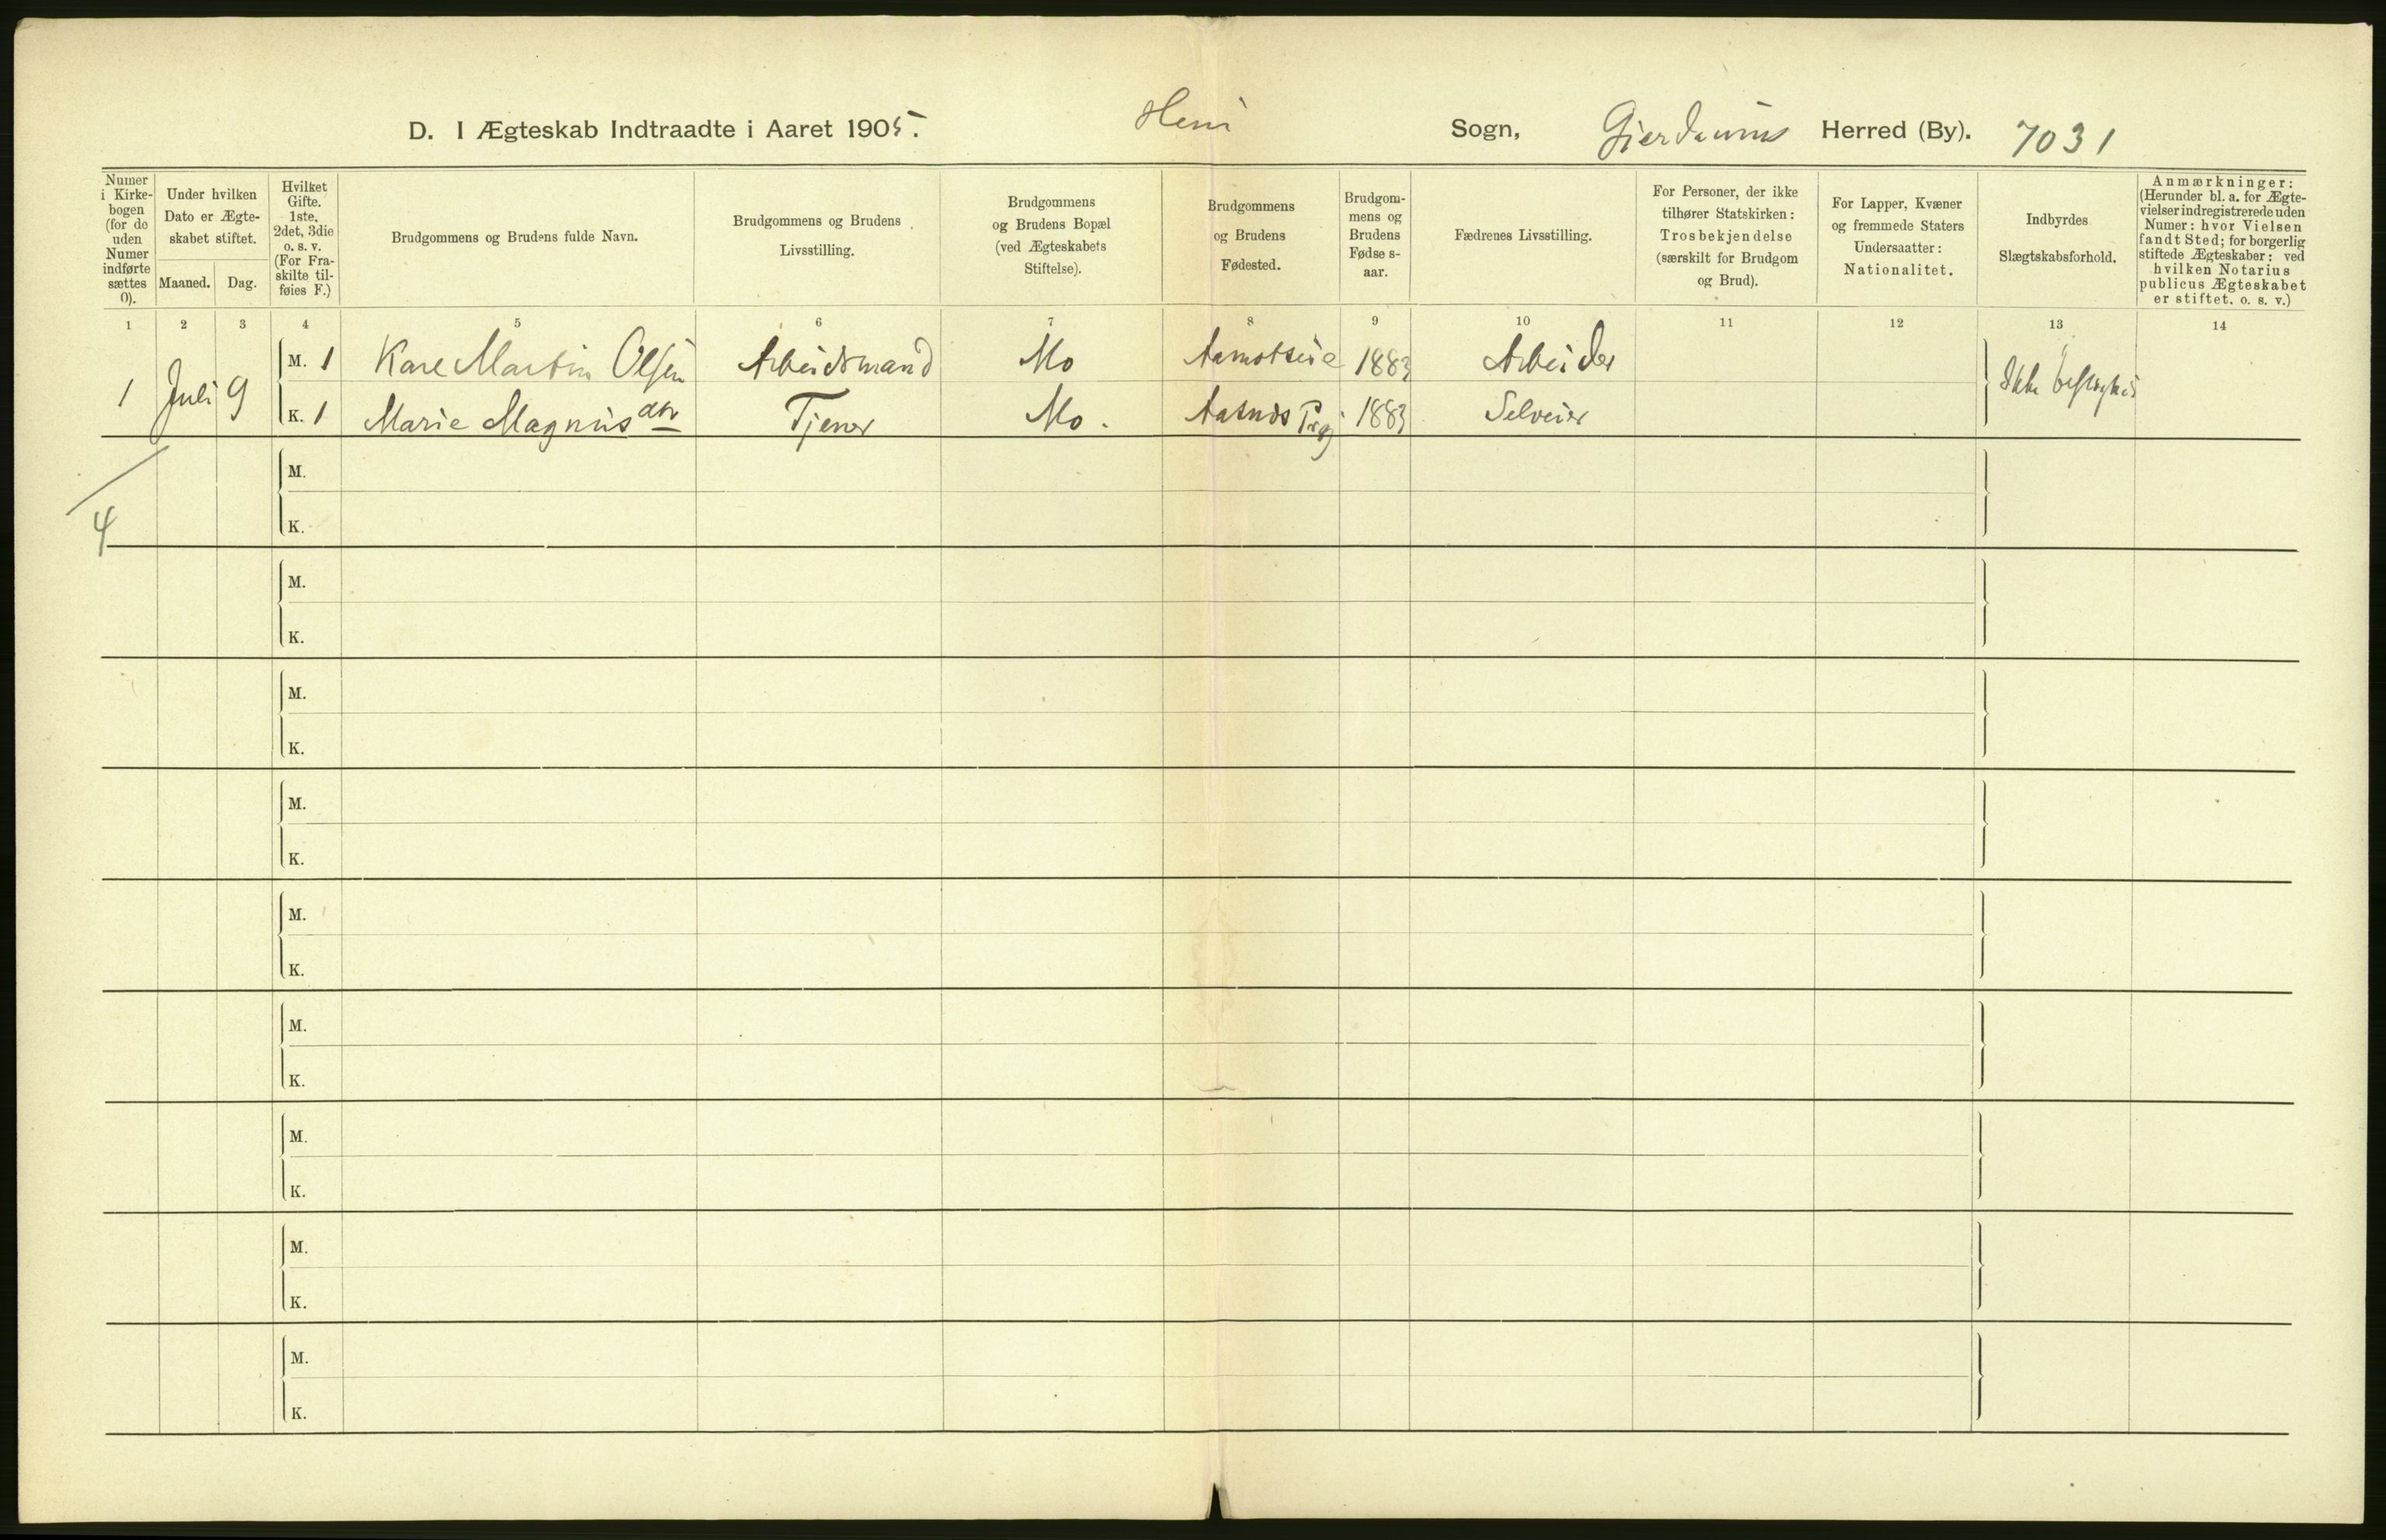 D. I Ægteskab Indtraadte i Aaret 1905. Heni Sogn, Gjerdrums Herred (By). 7031
Numer i Kirkebogen (for de uden Numer indførte sættes 0).
Under hvilken Dato er Ægteskabet stiftet.
Maaned. Dag.
Hvilket Gifte. 1ste, 2det, 3die o. s. v. (For Fraskilte tilføies F.)
Brudgommens og Brudens fulde Navn.
Brudgommens og Brudens Livsstilling.
Brudgommens og Brudens Bopæl (ved Ægteskabets Stiftelse).
Brudgommens og Brudens Fødested.
Brudgommens og Brudens Fødselsaar.
Fædrenes Livsstilling.
For Personer, der ikke tilhører Statskirken: Trosbekjendelse (særskilt for Brudgom og Brud).
For Lapper, Kvæner og fremmede Staters Undersaatter: Nationalitet.
Indbyrdes Slægtskabsforhold.
Anmærkninger: (Herunder bl. a. for Ægtevielser indregistrerede uden Numer: hvor Vielsen fandt Sted; for borgerlig stiftede Ægteskaber: ved hvilken Notarius publicus Ægteskabet er stiftet. o. s. v.)
1 2 3 4 5 6 7 8 9 10 11 12 13 14
1 Juli 9 M. 1 Karl Martin Olsen Arbeidsmand Mo 1883 Arbeider Ikke beslægtet
K. 1 Marie Magnusdtr Tjener Mo. Aasnes Prgj. 1883 Selveier
4
M.
K.
M.
K.
M.
K.
M.
K.
M.
K.
M.
K.
M.
K.
M.
K.
M.
K.